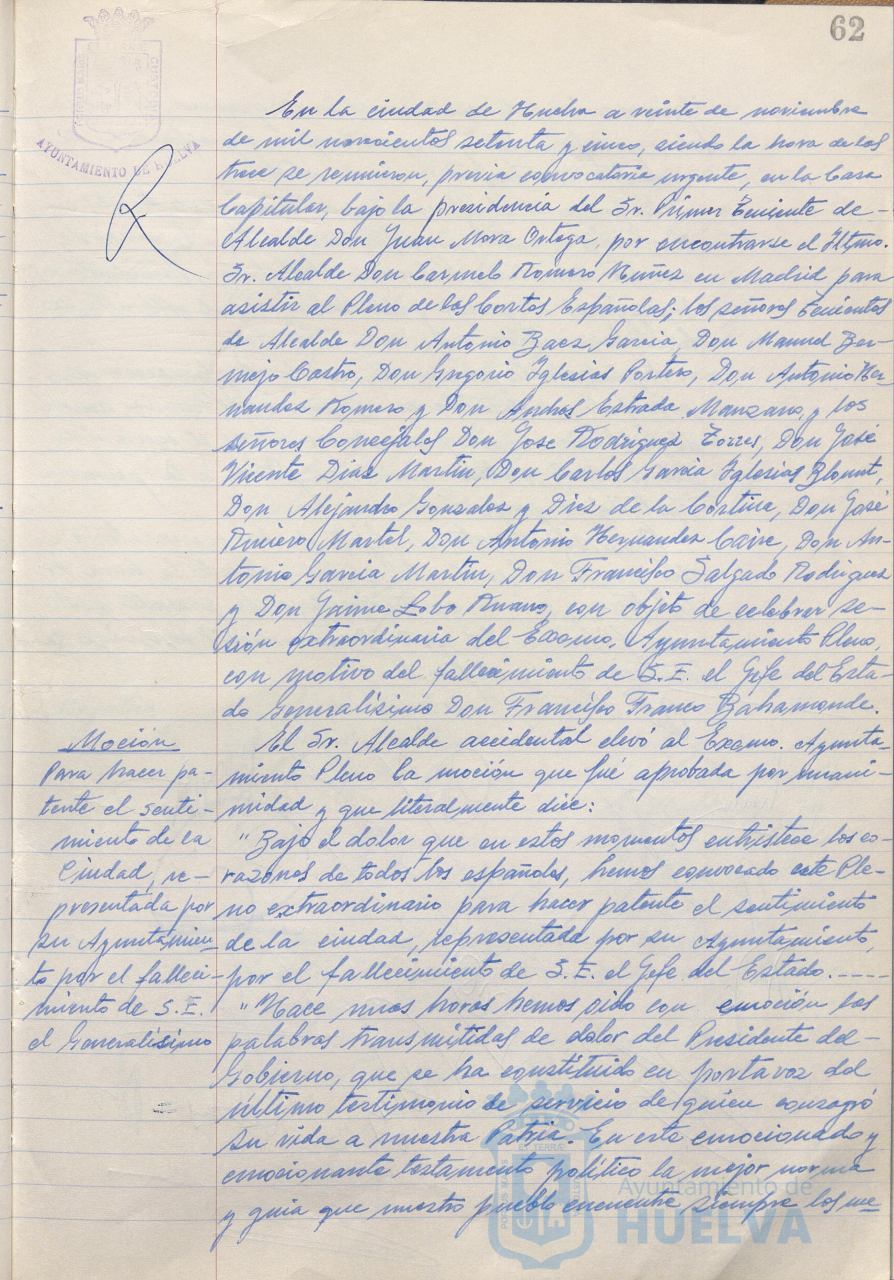 62
AYUNTAMIENTO DE HUELVA
En la ciudad de Huelva a veinte de noviembre
de mil novecientos setenta y cinco, siendo la hora de las
trece se reunieron, previa convocatoria urgente, en la Casa
Capitular, bajo la presidencia del Sr. Primer Teniente de-
Alcalde Don Juan Mora Ortega, por encontrarse el Iltmo.
Sr. Alcalde Don Carmelo Romero Núñez en Madrid para
asistir al Pleno de las Cortes Españolas; los señores Tenientes
de Alcalde Don Antonio Baez Garcia, Don Manuel Ber-
mejo Castro, Don Gregorio Iglesias Portero, Don Antonio Her-
nandez Romero y Don Andrés Estrada Manzano, y los
señores Concejales Don Jose Rodriguez Torres, Don José
Vicente Diaz Martin, Don Carlos Garcia Iglesias Blount,
Don Alejandro Gonzalez y Diez de la Cortina, Don José
Martel, Don Antonio Hernandez Don An-
tonio Garcia Martin, Don Francisco Salgado Rodriguez
y Don Jaime Lobo con objeto de celebrar se-
sión extraordinaria del Excmo. Ayuntamiento Pleno,
con motivo del fallecimiento de S.E. el Gefe del Esta-
do Generalísimo Don Francisco Franco Bahamonde.
Moción
Para hacer pa-
tente el senti-
miento de la
Ciudad, re-
presentada por
su Ayuntamien-
to por el falleci-
miento de S.E.
el Generalísimo
El Sr. Alcalde accidental elevó al Excmo. Ayunta-
miento Pleno la moción que fué aprobada por unani-
midad y que literalmente dice:
"Bajo el dolor que en estos momentos entristece los co-
razones de todos los españoles, hemos convocado este Ple-
no extraordinario para hacer patente el sentimiento
de la ciudad, representada por su Ayuntamiento,
por el fallecimiento de S.E. el Gefe del Estado.----
"Hace unas horas hemos oido con emoción las
palabras transmitidas de dolor del Presidente del-
Gobierno, que se ha constituido en portavoz del
último testimonio de servicio de quien consagró
su vida a nuestra Patria. En este emocionado y
emocionante testamento político la mejor norma
y guia que nuestro pueblo encuentre siempre los me-
Ayuntamiento de
HUELVA